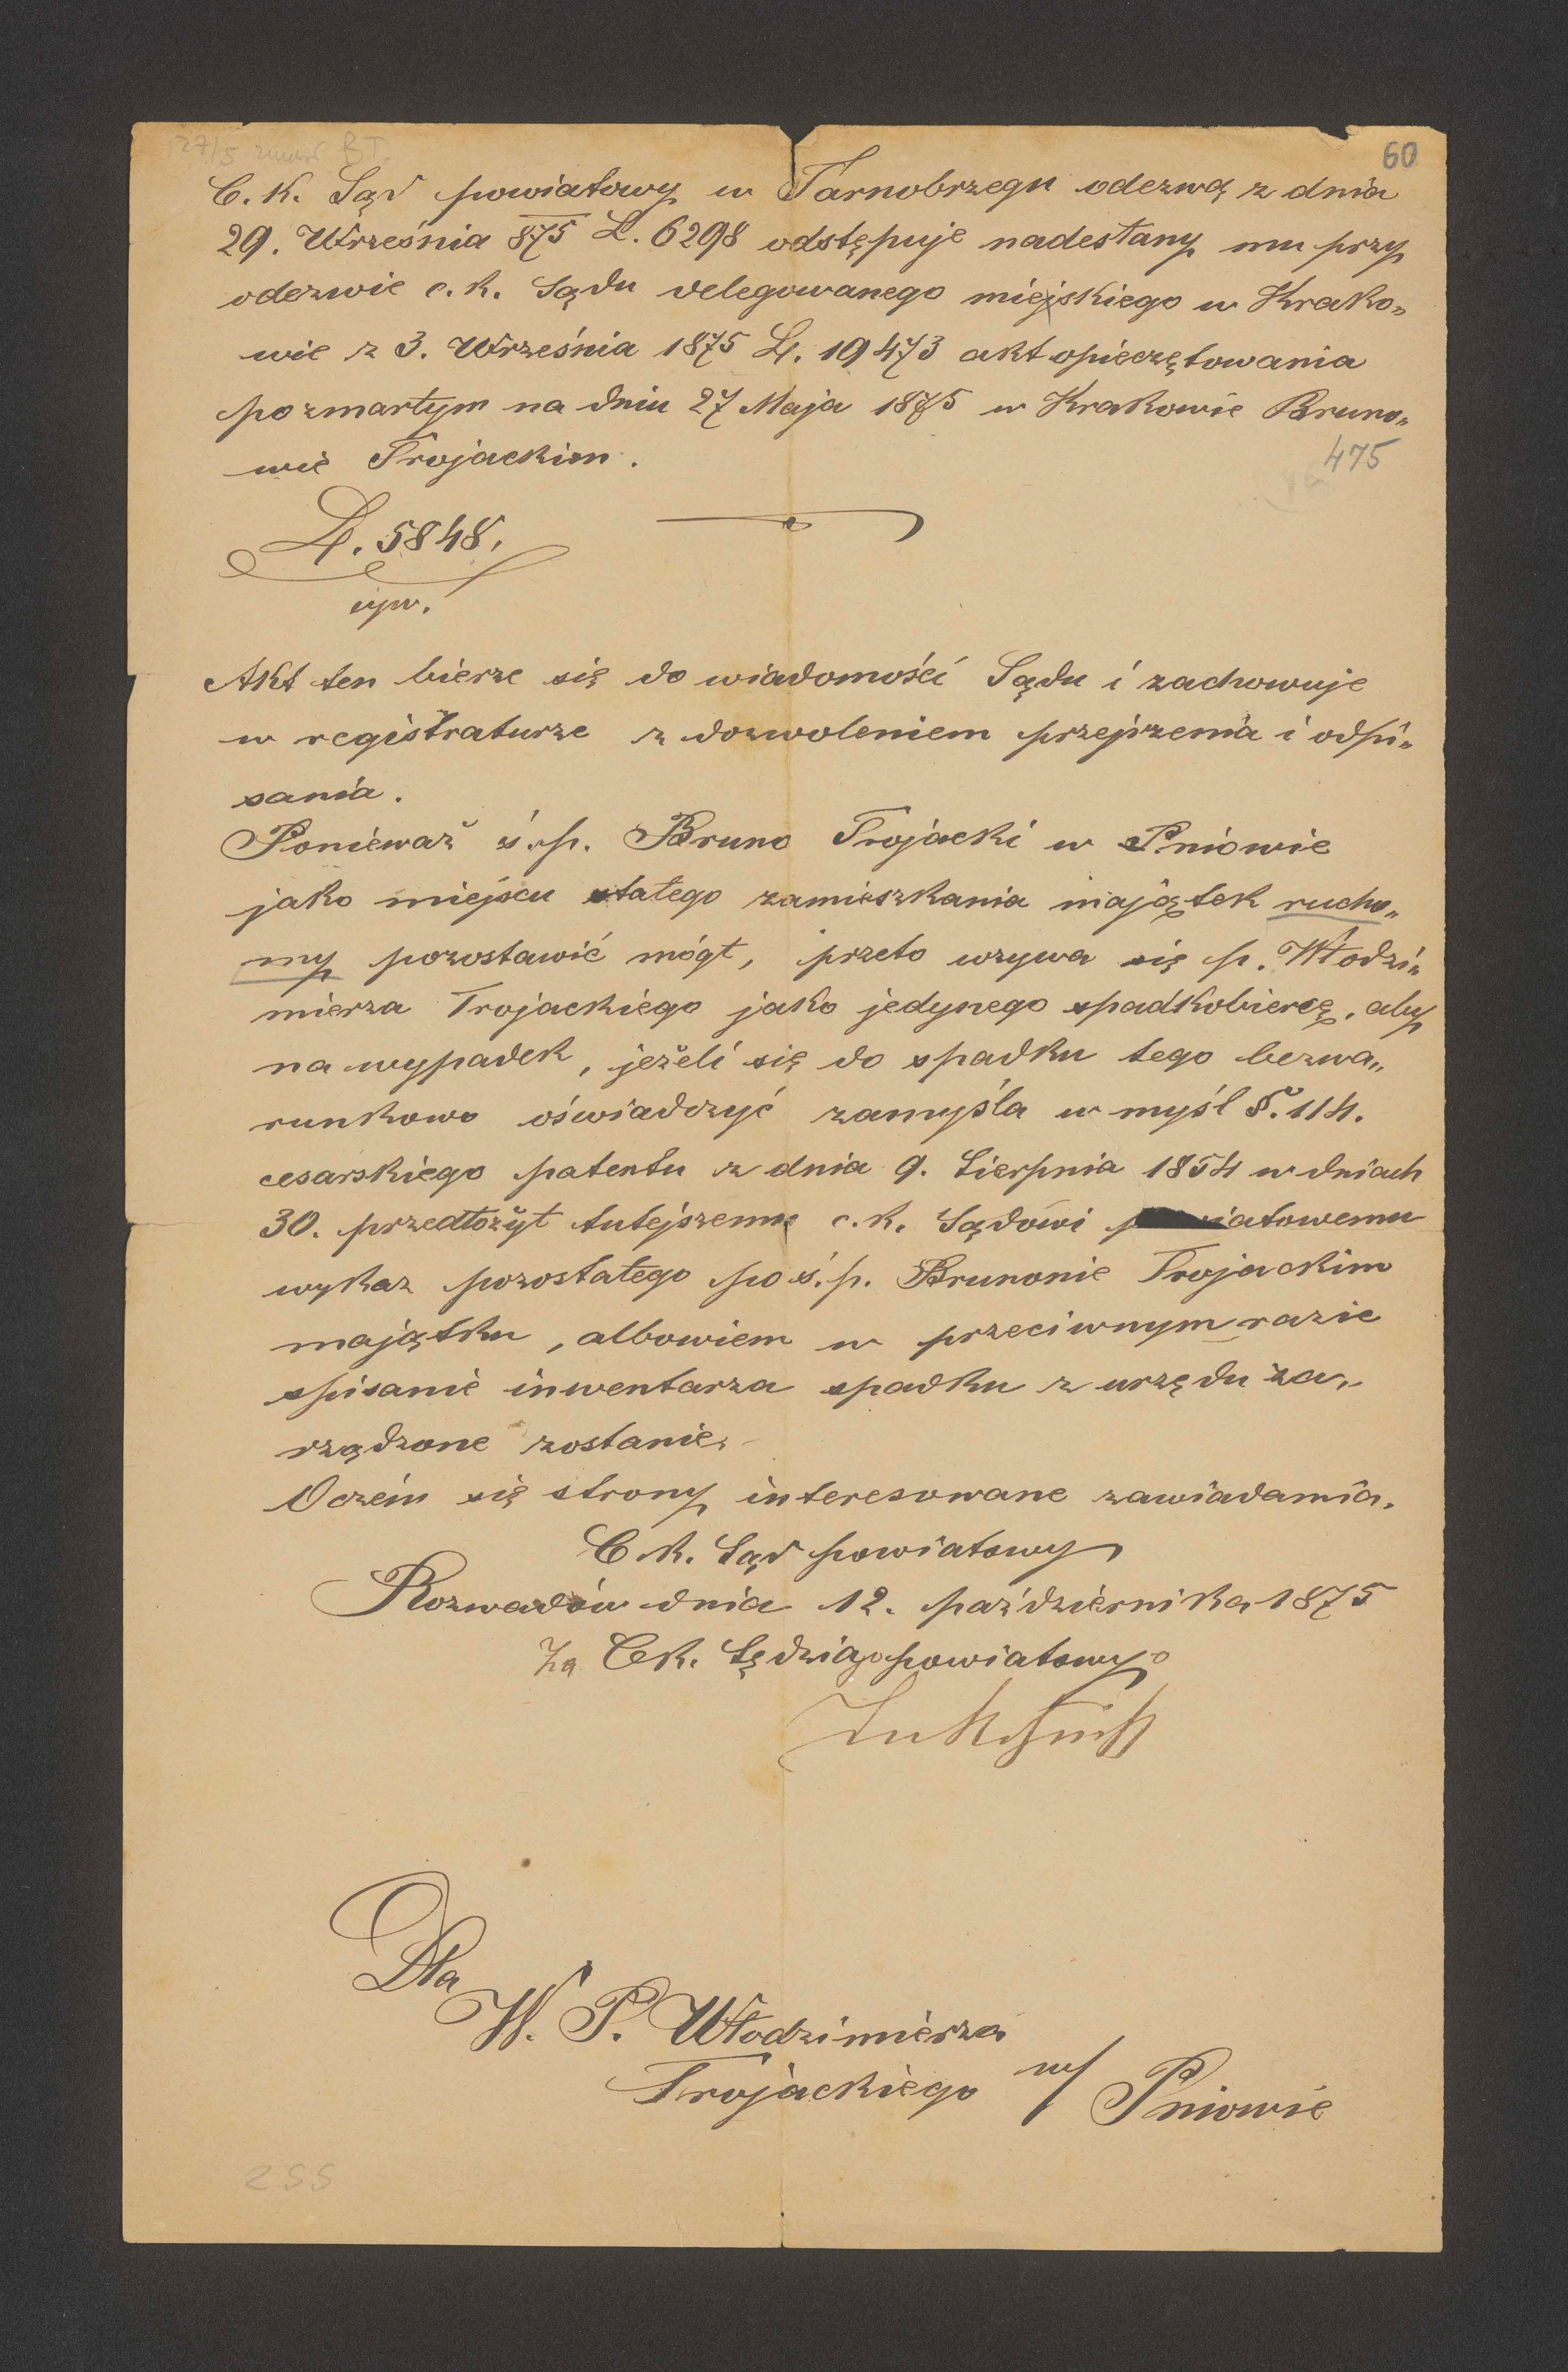 60
C. K. Sąd powiatowy w Tarnobrzegu odezwą z dnia
29. Września 875 L. 6298 odstępuje nadesłany mu przy
odezwie c. k. Sądu delegowanego miejskiego w Krako„
wie z 3. Września 1875 L. 19473 akt opieczętowania
po zmartym na dniu 27 Maja 1875 w Krakowie Bruno„
wie Trojackim.
475
L. 5848.
Akt ten bierze się do wiadomości Sądu i zachowuje
w registraturze z dozwoleniem przejrzenia i odpi„
sania.
Ponieważ ś. p. Bruno Trojacki w Pniowie
jako miejscu stałego zamieszkania majątek rucho„
my pozostawić mógł, przeto wzywa się p. Włodzi„
mierza Trojackiego jako jedynego spadkobiercę, aby
na wypadek, jeżeli się do spadku tego bezwa„
runkowo oświadczyć zamyśla w myśl §. 114.
cesarskiego patentu z dnia 9. Sierpnia 1854 w dniach
30. przedłożył tutejszemu c. k. Sądowi powiatowemu
wykaz pozostałego po ś. p. Brunonie Trojackim
majątku, albowiem w przeciwnym razie
spisanie inwentarza spadku z urzędu za„
rządzone zostanie.
O czem się strony interesowane zawiadamia.
C. k. Sąd powiatowy
Rozwadów dnia 12. października 1875
Za C. k. Sędziego powiatowego
Dla
W. P. Włodzimierza
Trojackiego w/ Pniowie
255